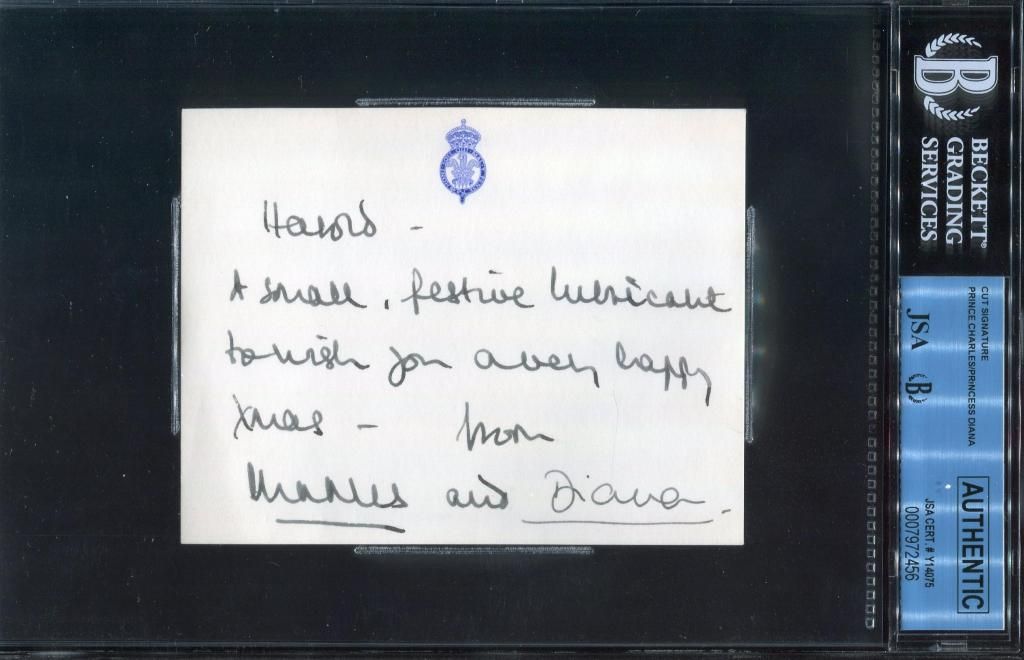 Harold -
A small, festive lubricant
to wish you a very happy
Xmas - from
Charles and Diana.
BECKETT
GRADING
SERVICES
CUT SIGNATURE
PRINCE CHARLES/PRINCESS DIANA
JSA B
AUTHENTIC
JSA CERT. # Y14075
0007972456